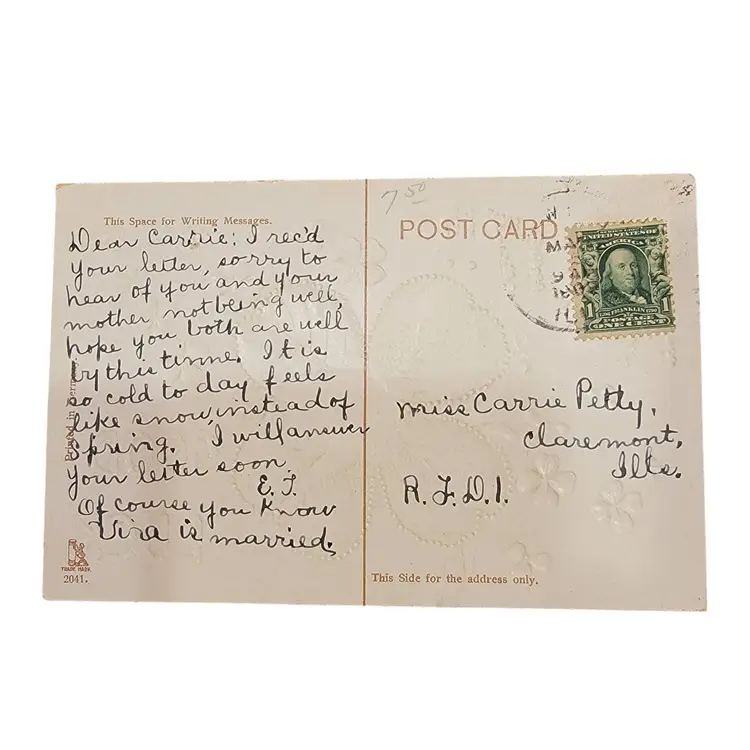 7 50
This Space for Writing Messages.
POST CARD
Dear Carrie: I rec'd
your letter, sorry to
hear of you and your
mother not being well,
hope you both are well
by this time. It is
so cold to day feels
like snow, instead of
spring. I will answer
your letter soon.
E. T.
Of course you know
Vira is married.
Printed in
TRADE MARK.
2041.
UNITED STATES OF
AMERICA
1 FRANKLIN
POSTAGE
ONE CENT
MA
9 A
Miss Carrie Petty,
Claremont,
Ills.
R.F.D.1.
This Side for the address only.